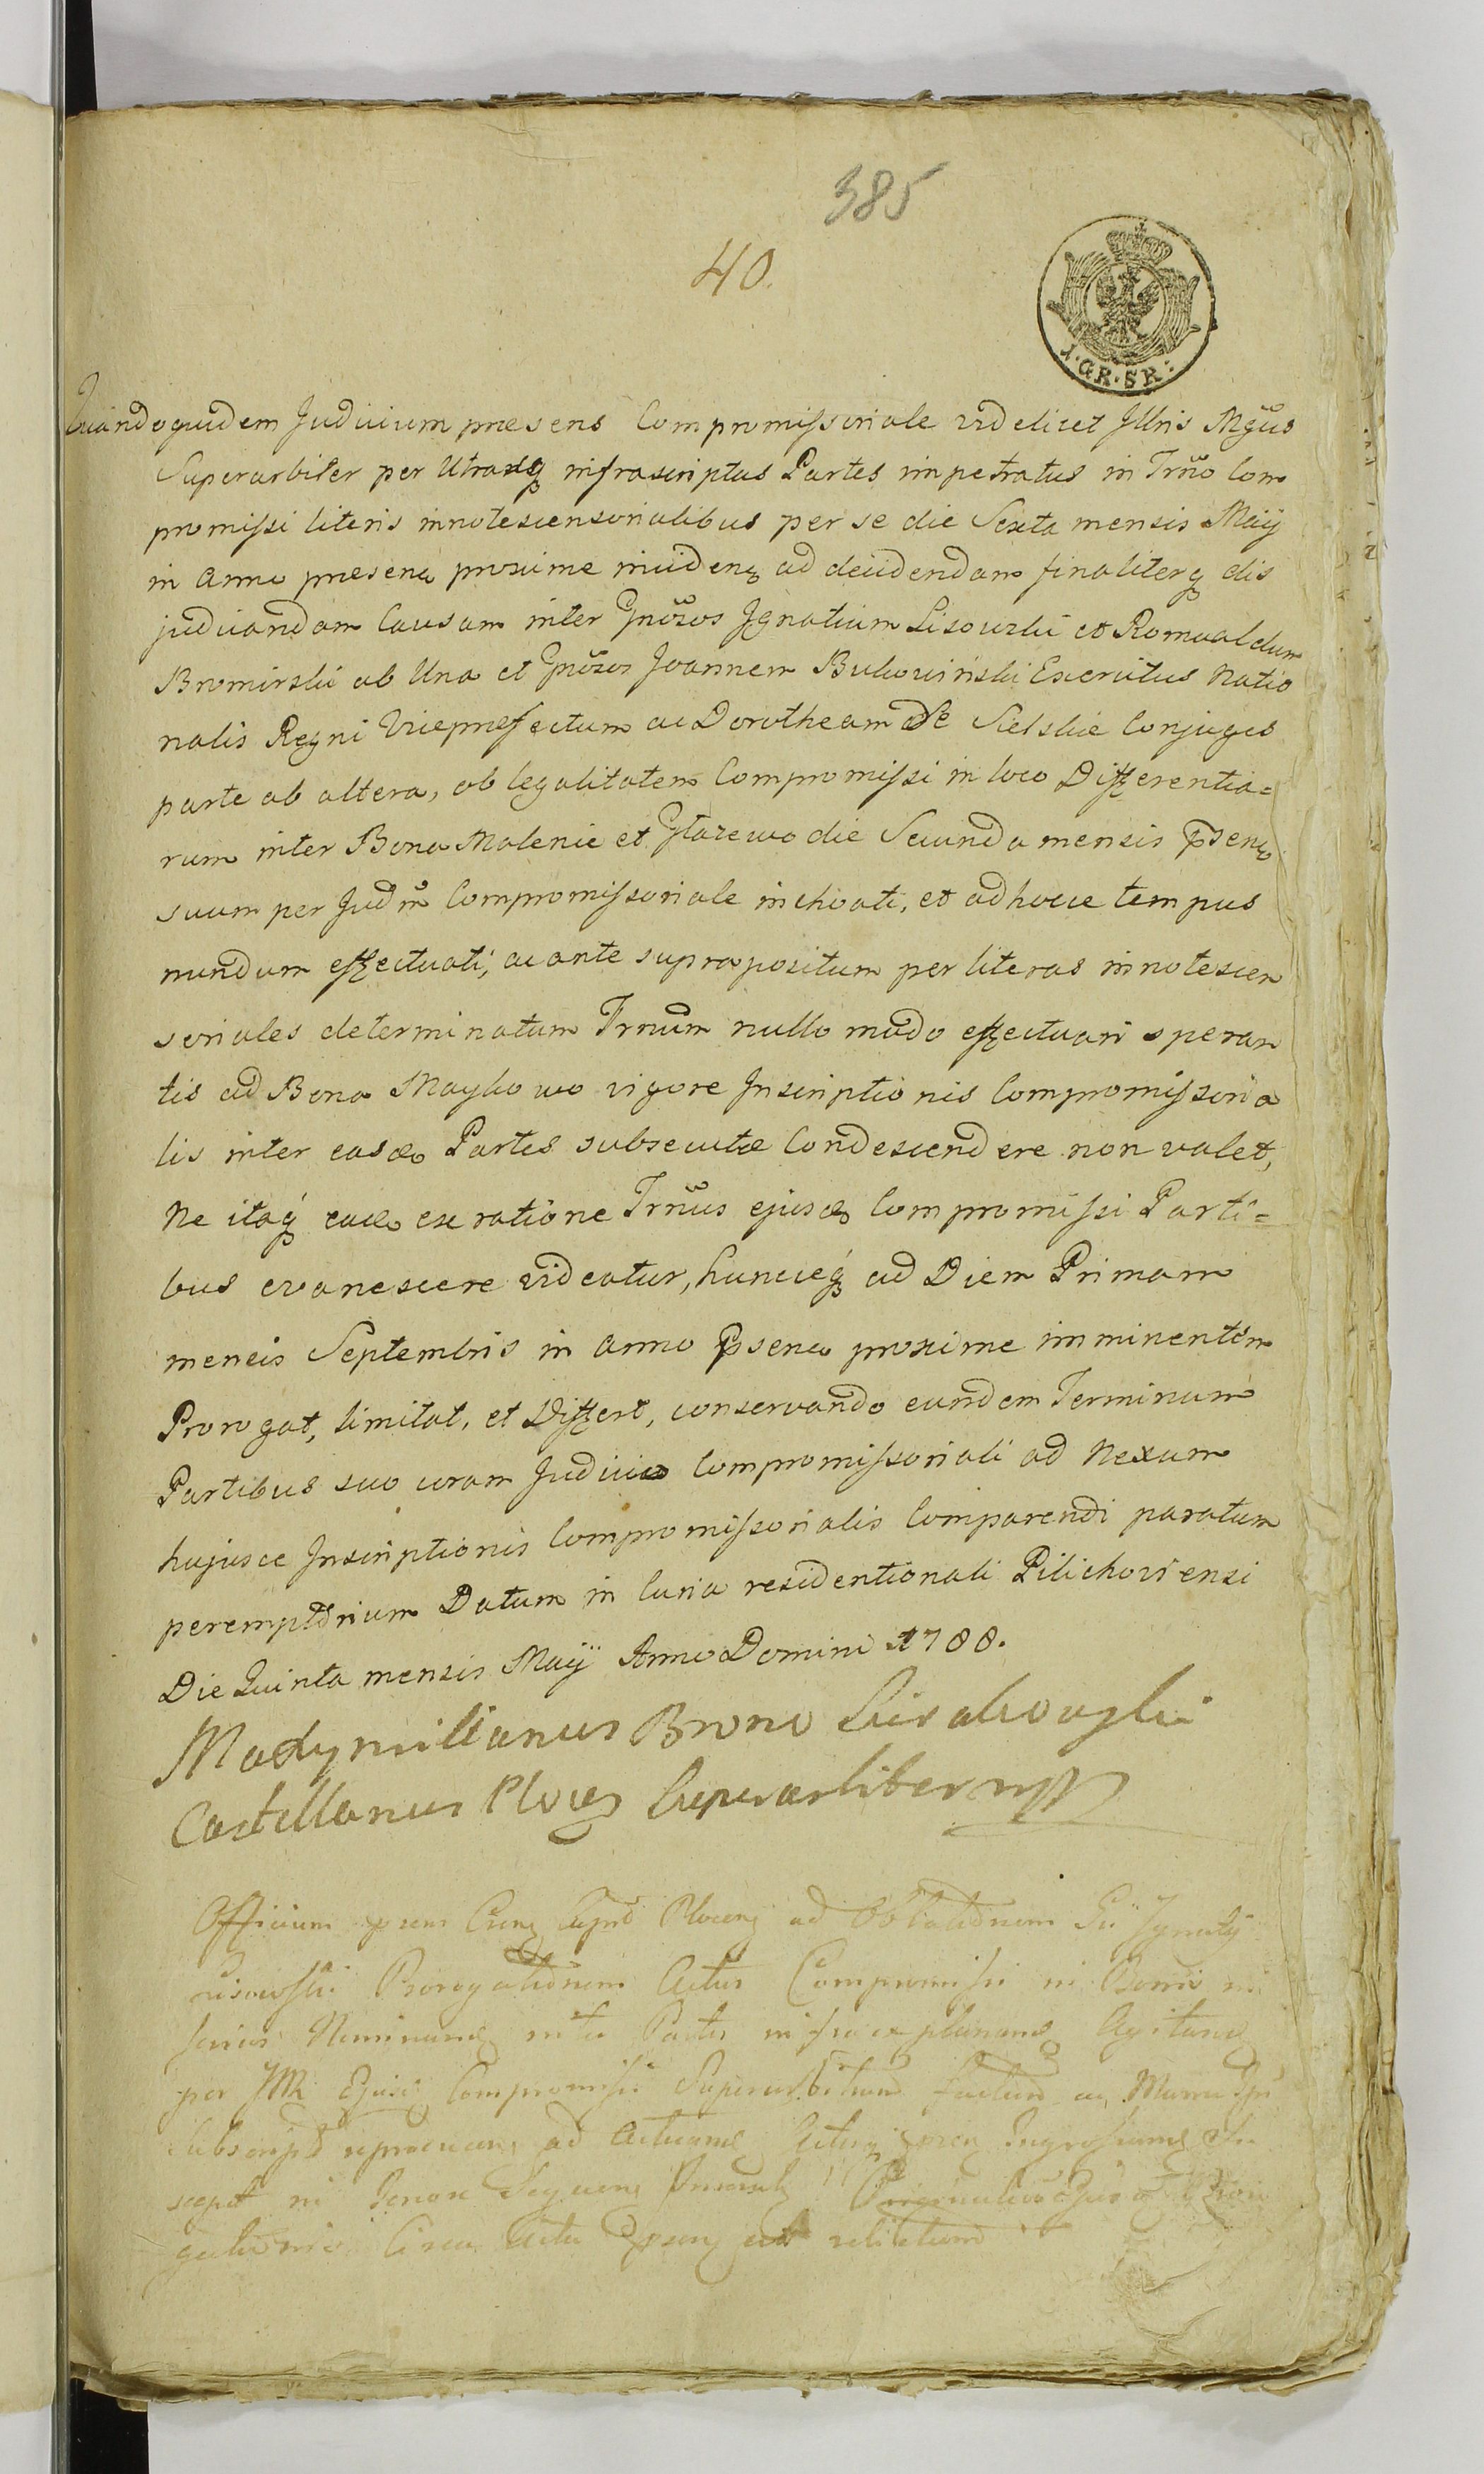 385
40.
1.GR.SR:
Quandoquidem Judicium praesens Compromissoriale videlicet Jllris Mgus
Superarbiter per Utrasq infrascriptas Partes impetratus in Trno Com
promissi literis innotescensorialibus per se die Sexta mensis Maij
in anno praesen proxime inciden ad decidendam finaliterq dis
judicandam Causam inter Gnosos Jgnatium Lisowski et Romualdum
Bromirski ab Una et Gnosos Joannem Bukowiński Exercitus Natio
nalis Regni Vicepraefectum ac Dorotheam de Sielskie Conjuges
parte ab altera, ob legalitatem Compromissi in loco Differentia=
rum inter Bona Malenie et Głazewo die Secunda mensis psen
suum per Judm Compromissoriale inchoati, et adhocce tempus
nundum effectuati, ac ante suprapositum per literas innotescen
soriales determinatum Trnum nullo modo effectuari speran
tis ad Bona Maykowo vigore Jnscriptionis Compromissoria
lis inter easd Partes subsecutae Condescendere non valet,
Ne itaq ead ex ratione Trnus ejusd Compromissi Parti=
bus evanescere videatur, huncceq ad Diem Primam
mensis Septembris in anno psen proxime imminentem
Prorogat, limitat, et Differt, conservando eundem Terminum
Partibus suo coram Judicio Compromissoriali ad Nexum
hujusce Jnscriptionis Compromissorialis Comparendi paratum
peremptorium Datum in Curia residentionali Pilichoviensi
Die Quinta mensis Maij Anno Domini 1788.
Maxymilianus Brono Sierakowski
Castellanus Ploc Superarbiter mpp
Officium praens Ciens Plocens ad Oblationem Jgnatij
Lisowski Prorogationem Actus Compromissi in Bonis in
ferius Nominand inter Partes infra explanand Agitand
per Ejusd Compromissi Superarbitrum factam ac Manu
Subscript ad Acticand Ingrossand
scepit Tenor Sequens
Circa Acta est relictum